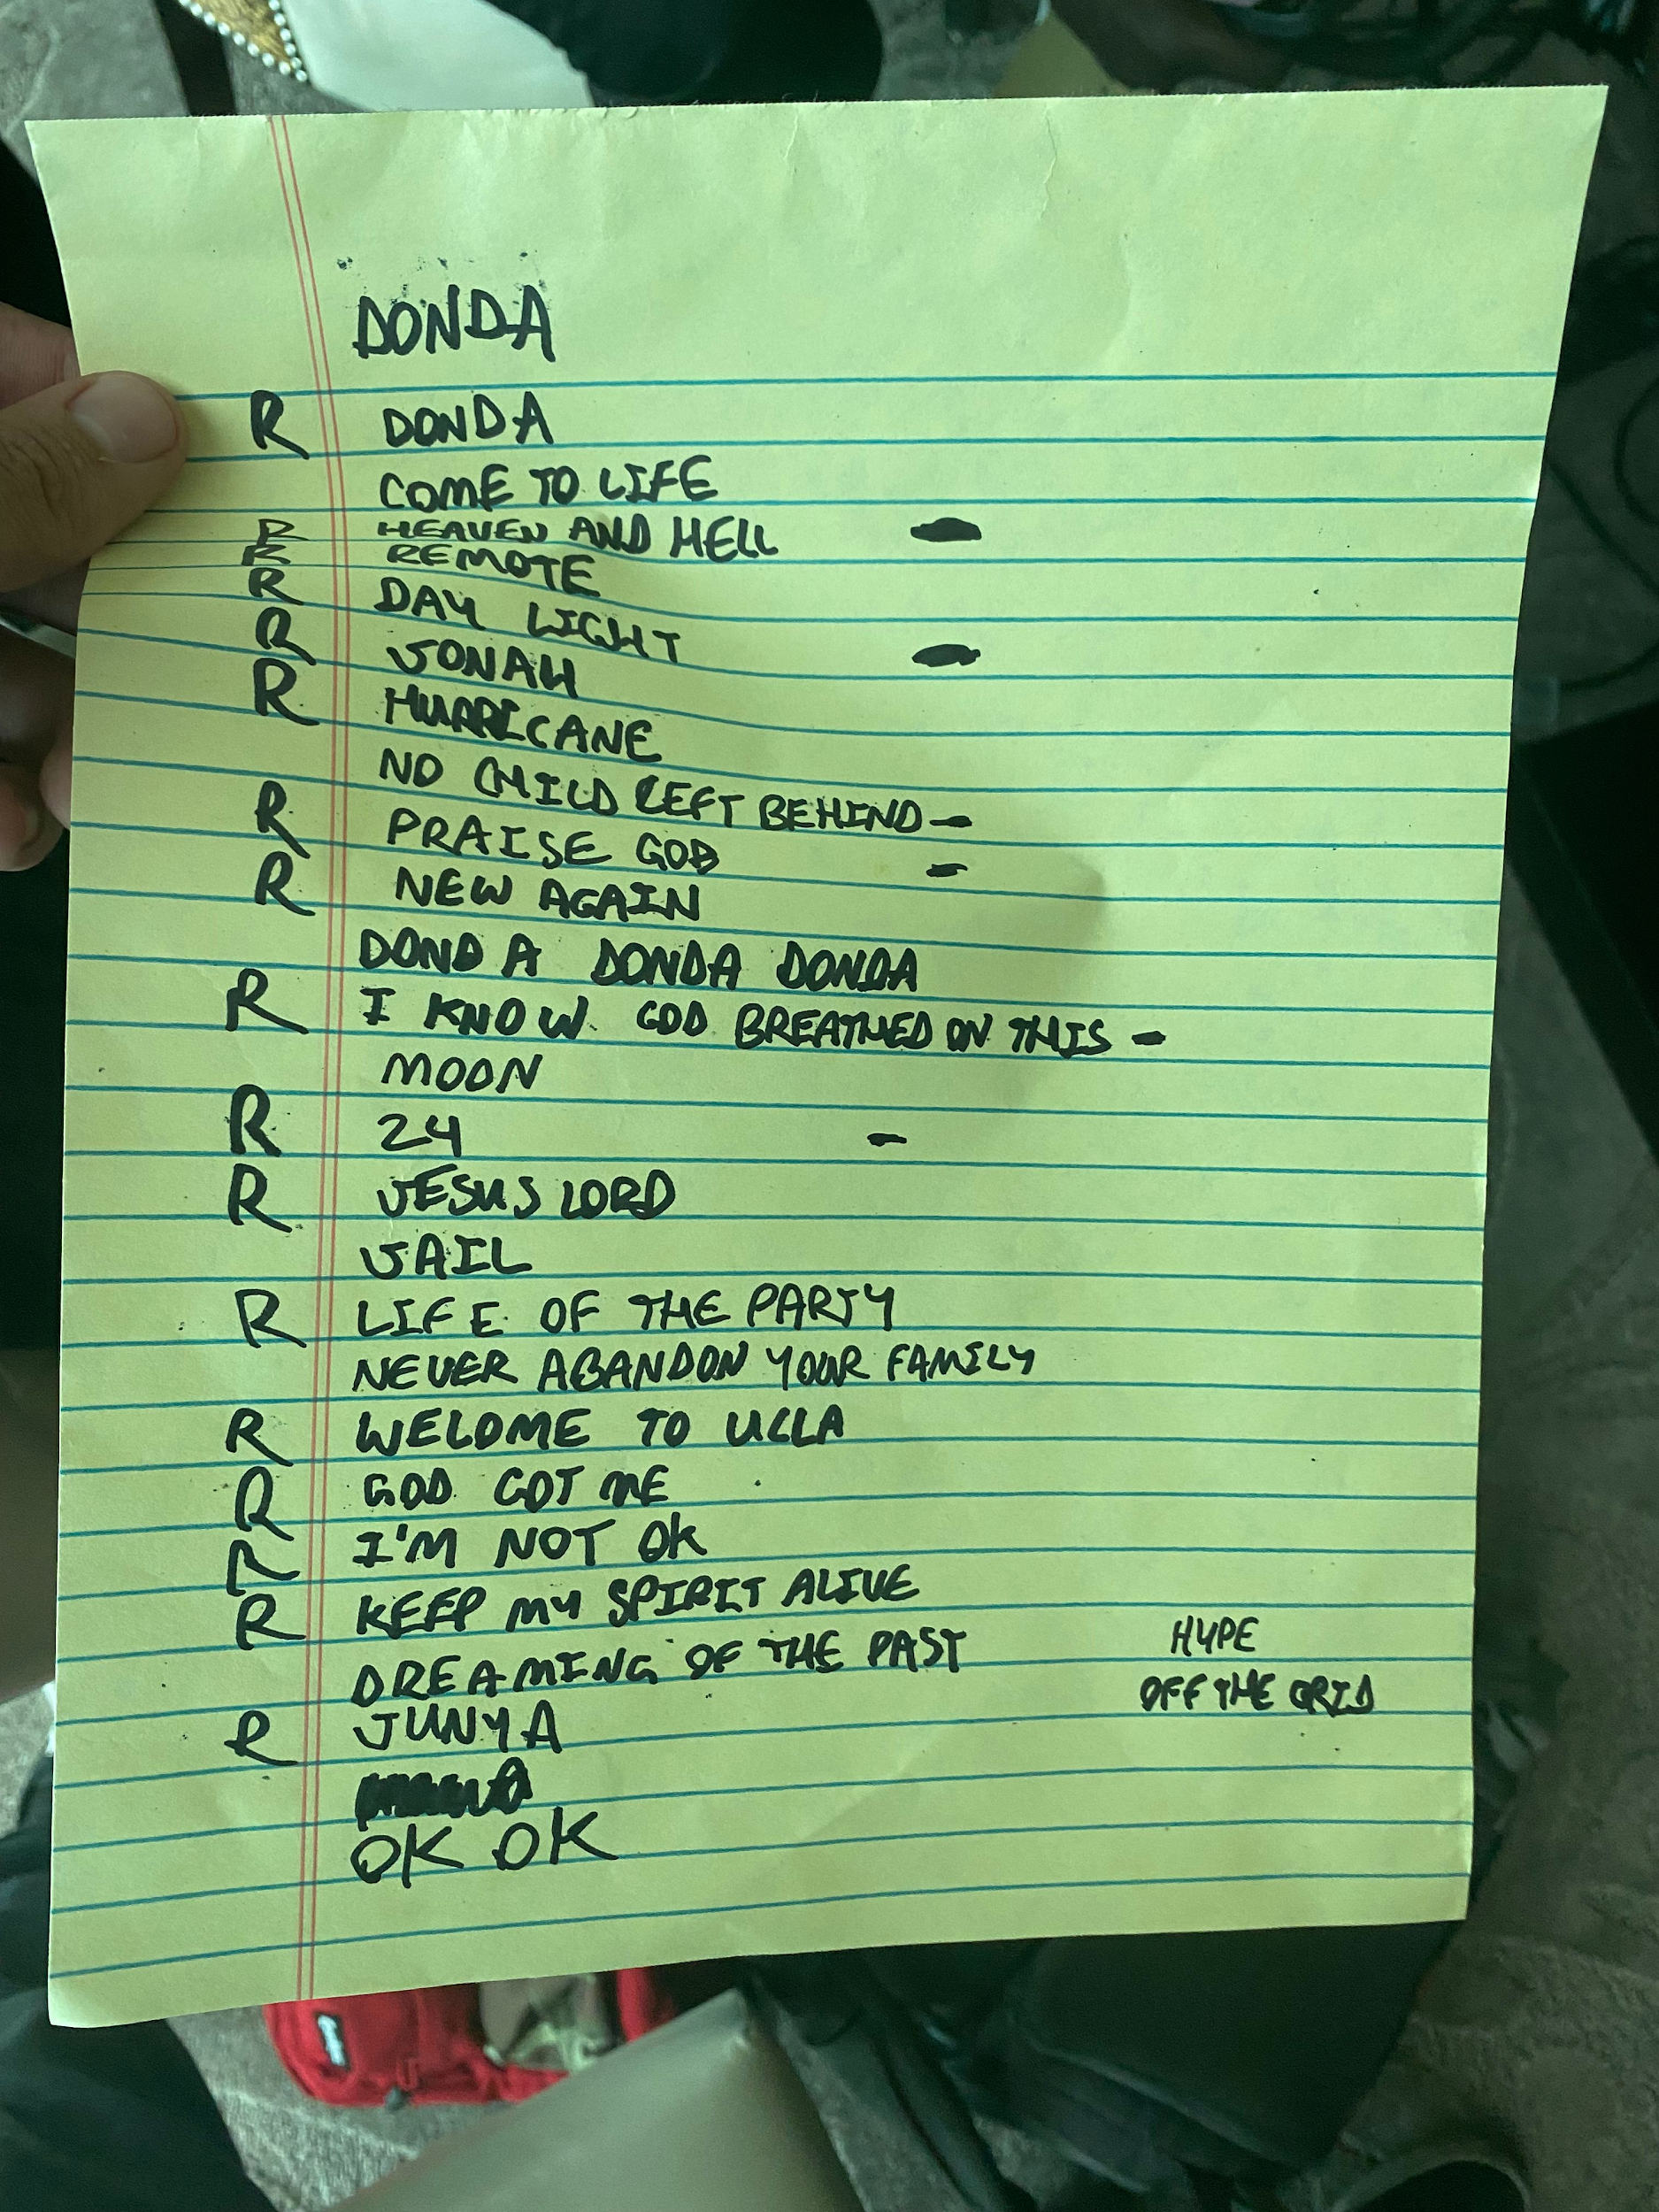 DONDA
R DONDA
COME TO LIFE
R HEAVEN AND HELL
R REMOTE
R DAY LIGHT
R JONAH
R HURRICANE
NO CHILD LEFT BEHIND -
R PRAISE GOD -
R NEW AGAIN
DONDA DONDA DONDA
R I KNOW GOD BREATHED ON THIS -
MOON
R 24 -
R JESUS LORD
JAIL
R LIFE OF THE PARTY
NEVER ABANDON YOUR FAMILY
R WELOME TO UCLA
R GOD GOT ME
R I'M NOT OK
R KEEP MY SPIRIT ALIVE
DREAMING OF THE PAST
HYPE
OFF THE GRID
R JUNYA
OK OK